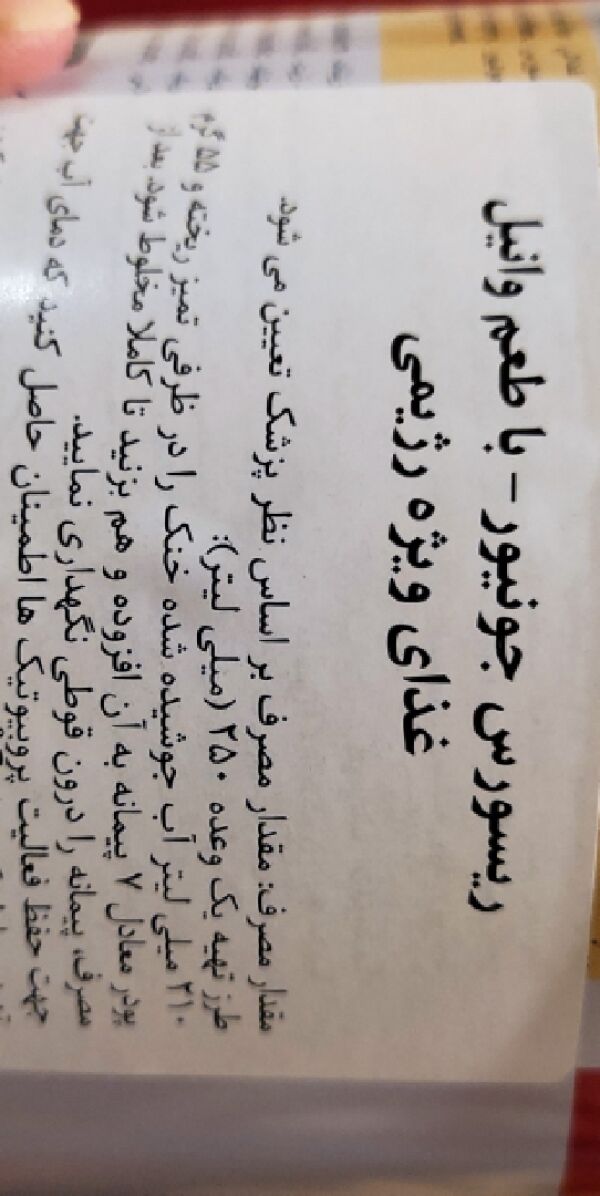 ریسورس جونیور - با طعم وانیل
غذای ویژه رژیمی
مقدار مصرف: مقدار مصرف بر اساس نظر پزشک تعیین می شود.
طرز تهیه یک وعده ۲۵۰ (میلی لیتر):
۲۱۰ میلی لیتر آب جوشیده شده خنک را در ظرفی تمیز ریخته و ۵۵ گرم
پودر معادل ۷ پیمانه به آن افزوده و هم بزنید تا کاملا مخلوط شود. بعد از
مصرف، پیمانه را درون قوطی نگهداری نمایید.
جهت حفظ فعالیت پروبیوتیک ها اطمینان حاصل کنید که دمای آب جهت